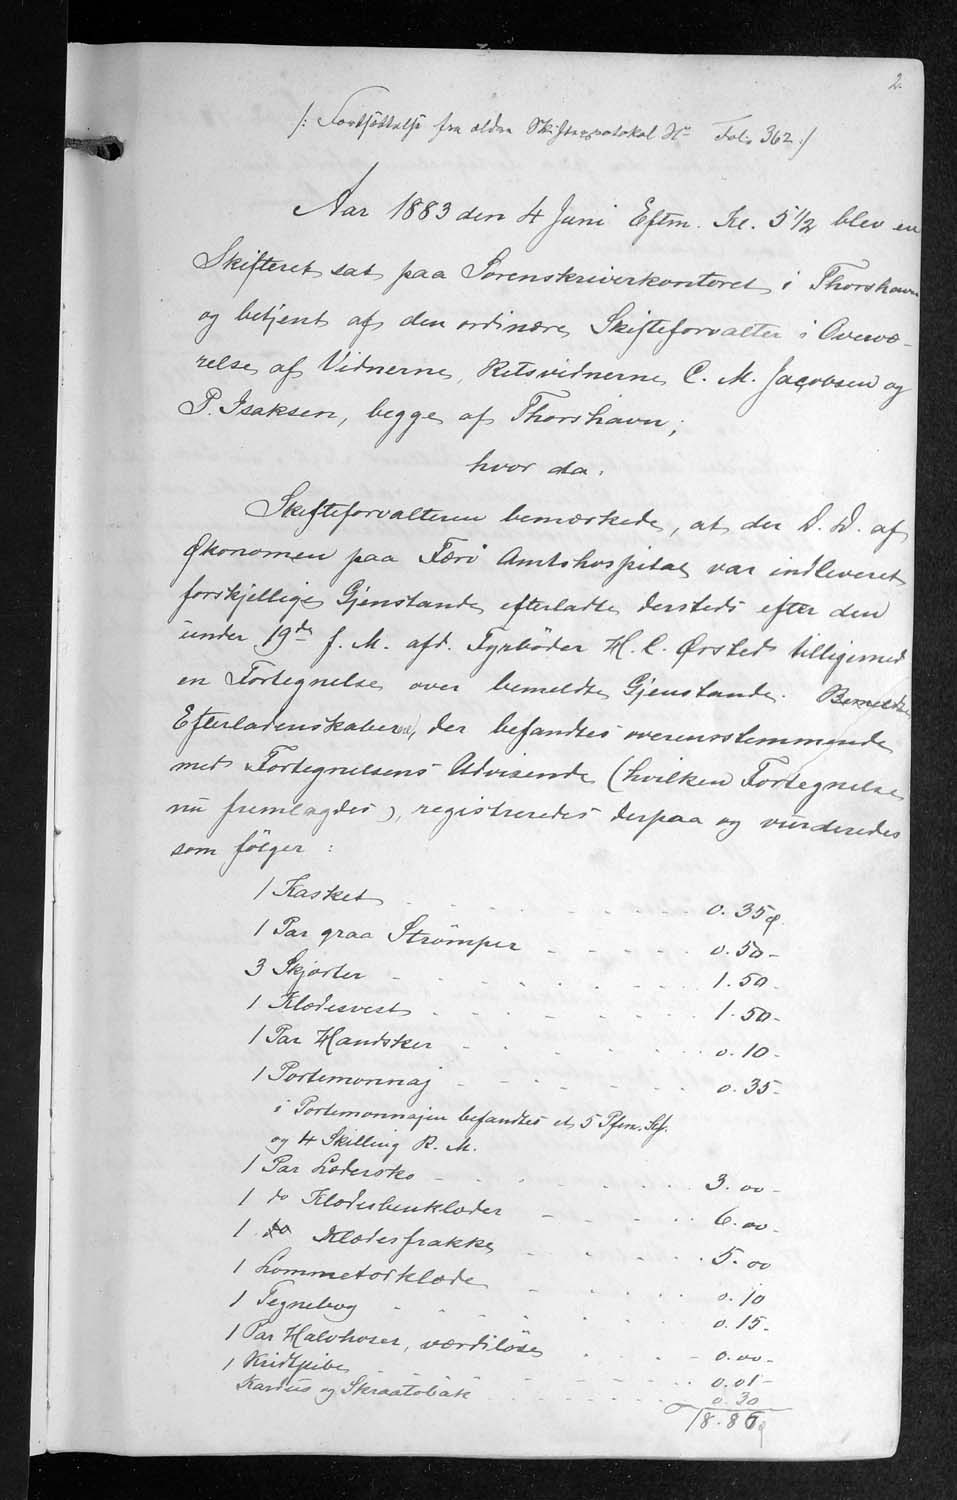 2.
/: Fortsættelse fra ældre Skifteprotokol No Fol. 362 :/
Aar 1883 den 4 Juni Eftm. Kl. 5 1/2 blev en
Skifteret sat paa Sorenskriverkontoret i Thorshavn
og betjent af den ordinære Skifteforvalter i Overvæ-
relse af Vidnerne, Retsvidnerne C. M. Jacobsen og
P. Isaksen, begge af Thorshavn;
hvor da:
Skifteforvalteren bemærkede, at der D. D. af
Økonomen paa Færø Amtshospital var indleveret
forskjellige Gjenstande efterladte dersteds efter den
under 19de f. M. afd. Fyrbøder H. C. Ørsted tilligemed
en Fortegnelse over bemeldte Gjenstande. Bemeldte
Efterladenskaber, der befandtes overensstemmende
med Fortegnelsens Udvisende (hvilken Fortegnelse
nu fremlagdes), registreredes derpaa og vurderedes
som følger:
1 Kasket 0.35
1 Par graa Strømper 0.50-
3 Skjorter 1.50-
1 Klædesvest 1.50-
1 Par Handsker 0.10-
1 Portemonnaj 0.35-
i Portemonnajen befandtes et 5 Pfen. St.
og 4 Skilling R. M.
1 Par Lædersko 3.00-
1 do Klædesbenklæder 6.00-
1 do Klædesfrakke 5.00
1 Lommetørklæde 0.10
1 Tegnebog 0.15-
1 Par Halvhoser, værdiløse 0.00-
1 Kridtpibe 0.01-
Kardus og Skraatobak 0.30
18.86